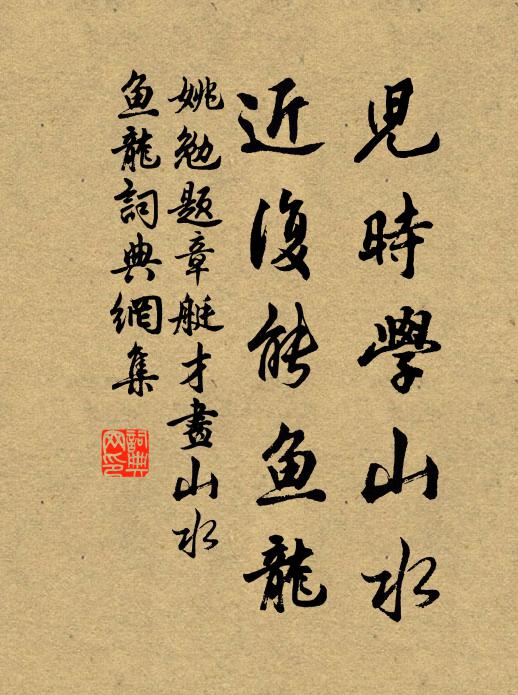 児時學山水
近復能魚龍
姚勉題章艇才畫山水
魚龍詞典網集
詞典網印